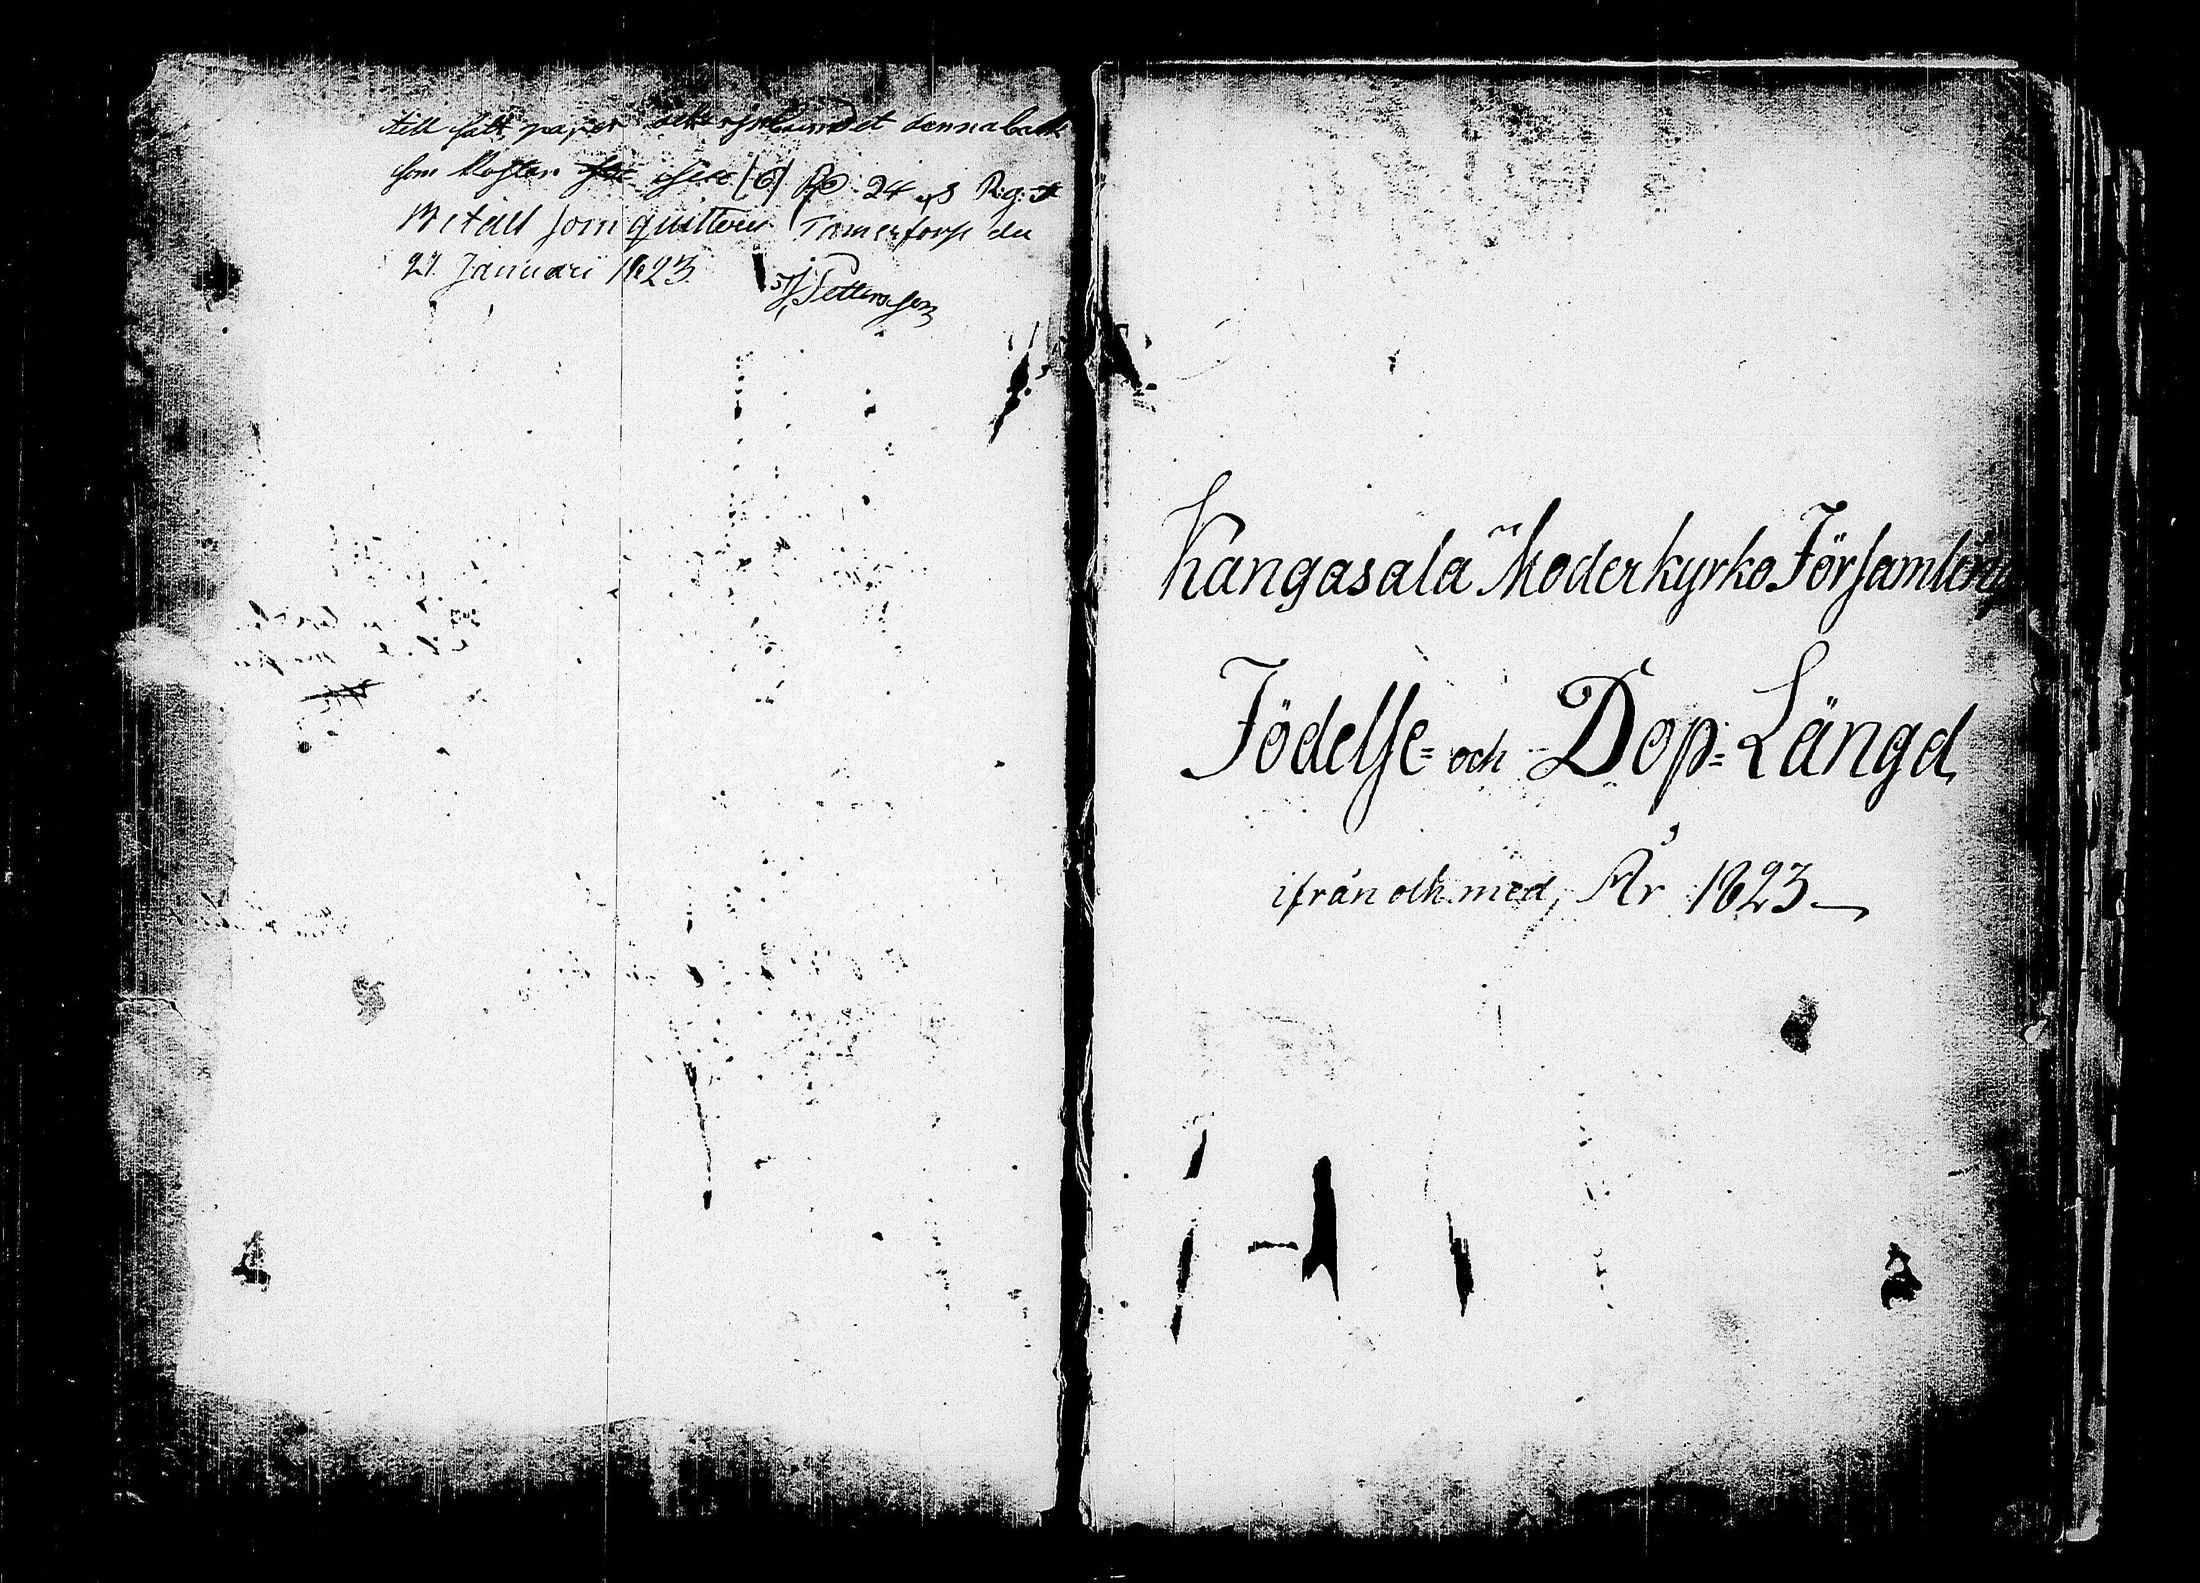 till satt paper och inbundet denna bock
som kostar (6) R 24 s R:g:s
Metall som quitteras Tamerfors den
27. Januari 1823.
Pettersson
Kangasala Moderkyrko Församling
Födelse= och Dop=Längd,
ifrån och med, År 1823